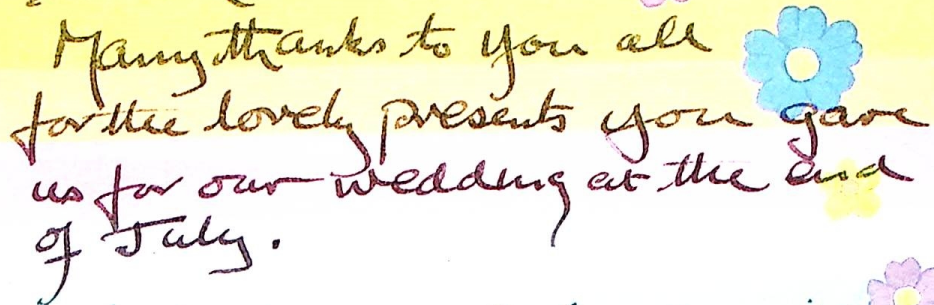 Many thanks to you all
for the lovely presents you gave
us for our wedding at the end
of July.